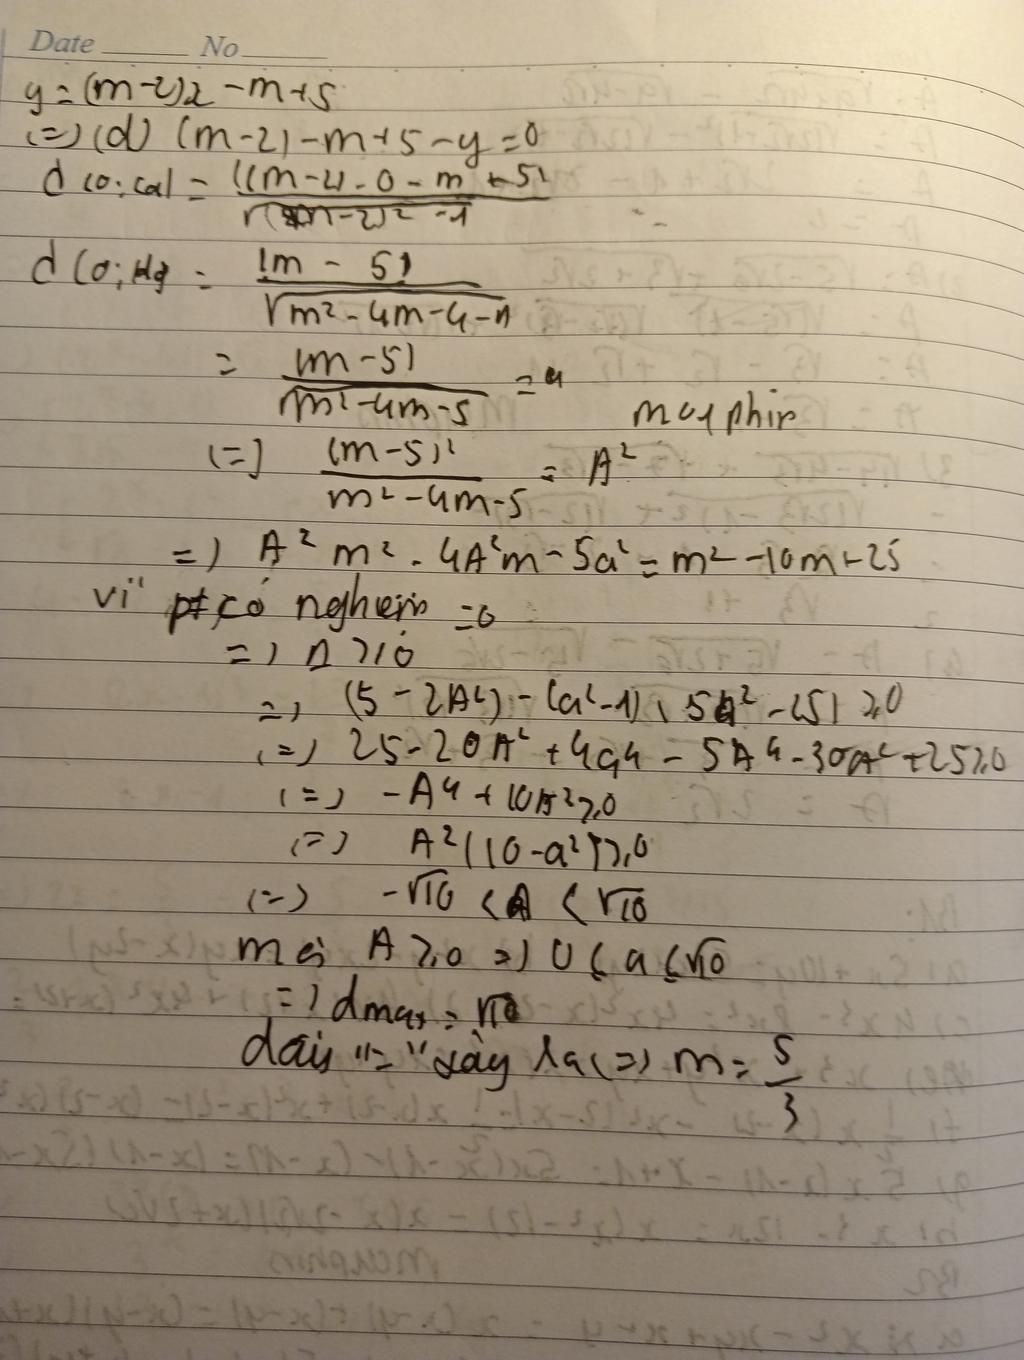 Date ____ No ____
y = (m-2)x - m+5
(=) (d) (m-2) - m+5 - y = 0
d (o; (d)) = |(m-2).0 - m + 5| / √((m-2)² - 1)
d (o; (d)) = |m - 5| / √(m² - 4m - 4 - 1)
= (m-5) / √(m² - 4m - 5) = a
(=) (m-5)² / (m² - 4m - 5) = A²
=) A²m² - 4A²m - 5a² = m² - 10m + 25
vì pt có nghiệm = 0
=) Δ ≥ 0
=) (5 - 2A²) - (a² - 1)(5a² - 25) ≥ 0
(=) 25 - 20A² + 4a4 - 5A4 - 30A² + 25 ≥ 0
(=) -A4 + 10A² ≥ 0
(=) A²(10 - a²) ≥ 0
(=) -√10 < A < √10
mà A ≥ 0 =) 0 ≤ a ≤ √10
=) dmax = √10
dấu "=" xảy ra (=) m = 5/3